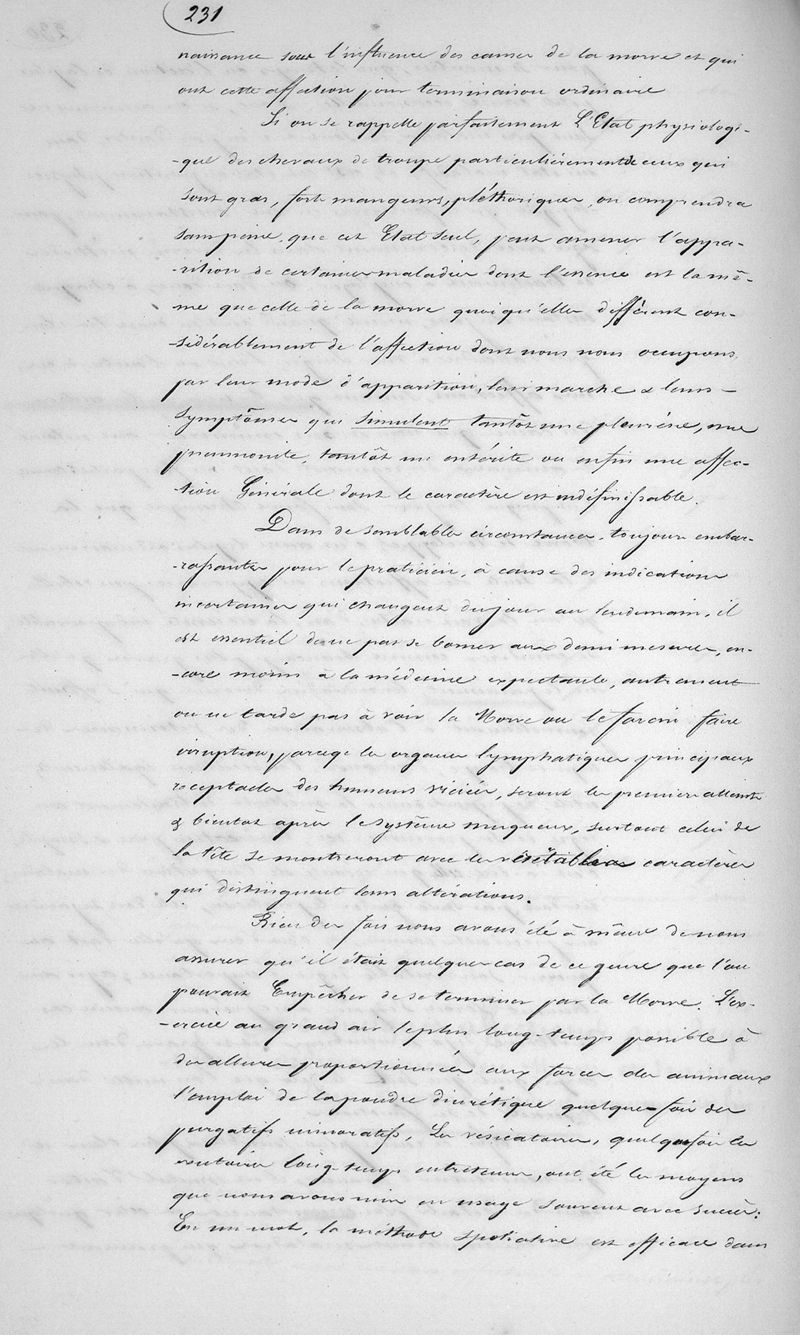 231
naissance sous l'influence des causes de la morve et qui
ont cette affection pour terminaison ordinaire
Si on se rappelle parfaitement l'Etat physiologi-
-que des chevaux de troupe particulièrement de ceux qui
sont gras, forts mangeurs, pléthoriques, on comprendra
sans peine que cet Etat seul, peut amener l'appa-
-rition de certaines maladies dont l'essence est la mê-
me que celle de la morve quoiqu'elles diffèrent con-
-sidérablement de l'affection dont nous nous occupons
par leur mode d'apparition, leur marche & leurs
symptômes qui simulent tantôt une pleurésie, une
pneumonite, tantôt une entérite ou enfin une affec-
-tion Générale dont le caractère est indéfinissable.
Dans de semblables circonstances, toujours embar-
-rassantes pour le praticien, à cause des indications
incertaines qui changent du jour au lendemain, il
est essentiel de ne pas se borner aux demi mesures, en-
-core moins à la médecine expectante, autrement
on ne tarde pas à voir la Morve ou le farcin faire
irruption, parceque les organes lymphatiques principaux
receptacles des humeurs viciées, seront les premiers atteints
& bientot après le système muqueux, surtout celui de
la tête se montreront avec les véritables caractères
qui distinguent leurs altérations.
Bien des fois nous avons été à même de nous
assurer qu'il était quelques cas de ce genre que l'on
pouvait Empêcher de se terminer par la Morve. L'ex-
-ercice au grand air le plus long-temps possible à
des allures proportionnées aux forces des animaux
l'emploi de la poudre diurétique quelques fois des
purgatifs minoratifs, les vésicatoires, quelquefois les
exutoires long-temps entretenus, ont été les moyens
que nous avons mis en usage souvent avec succès:
En un mot, la méthode spoliative est efficace dans